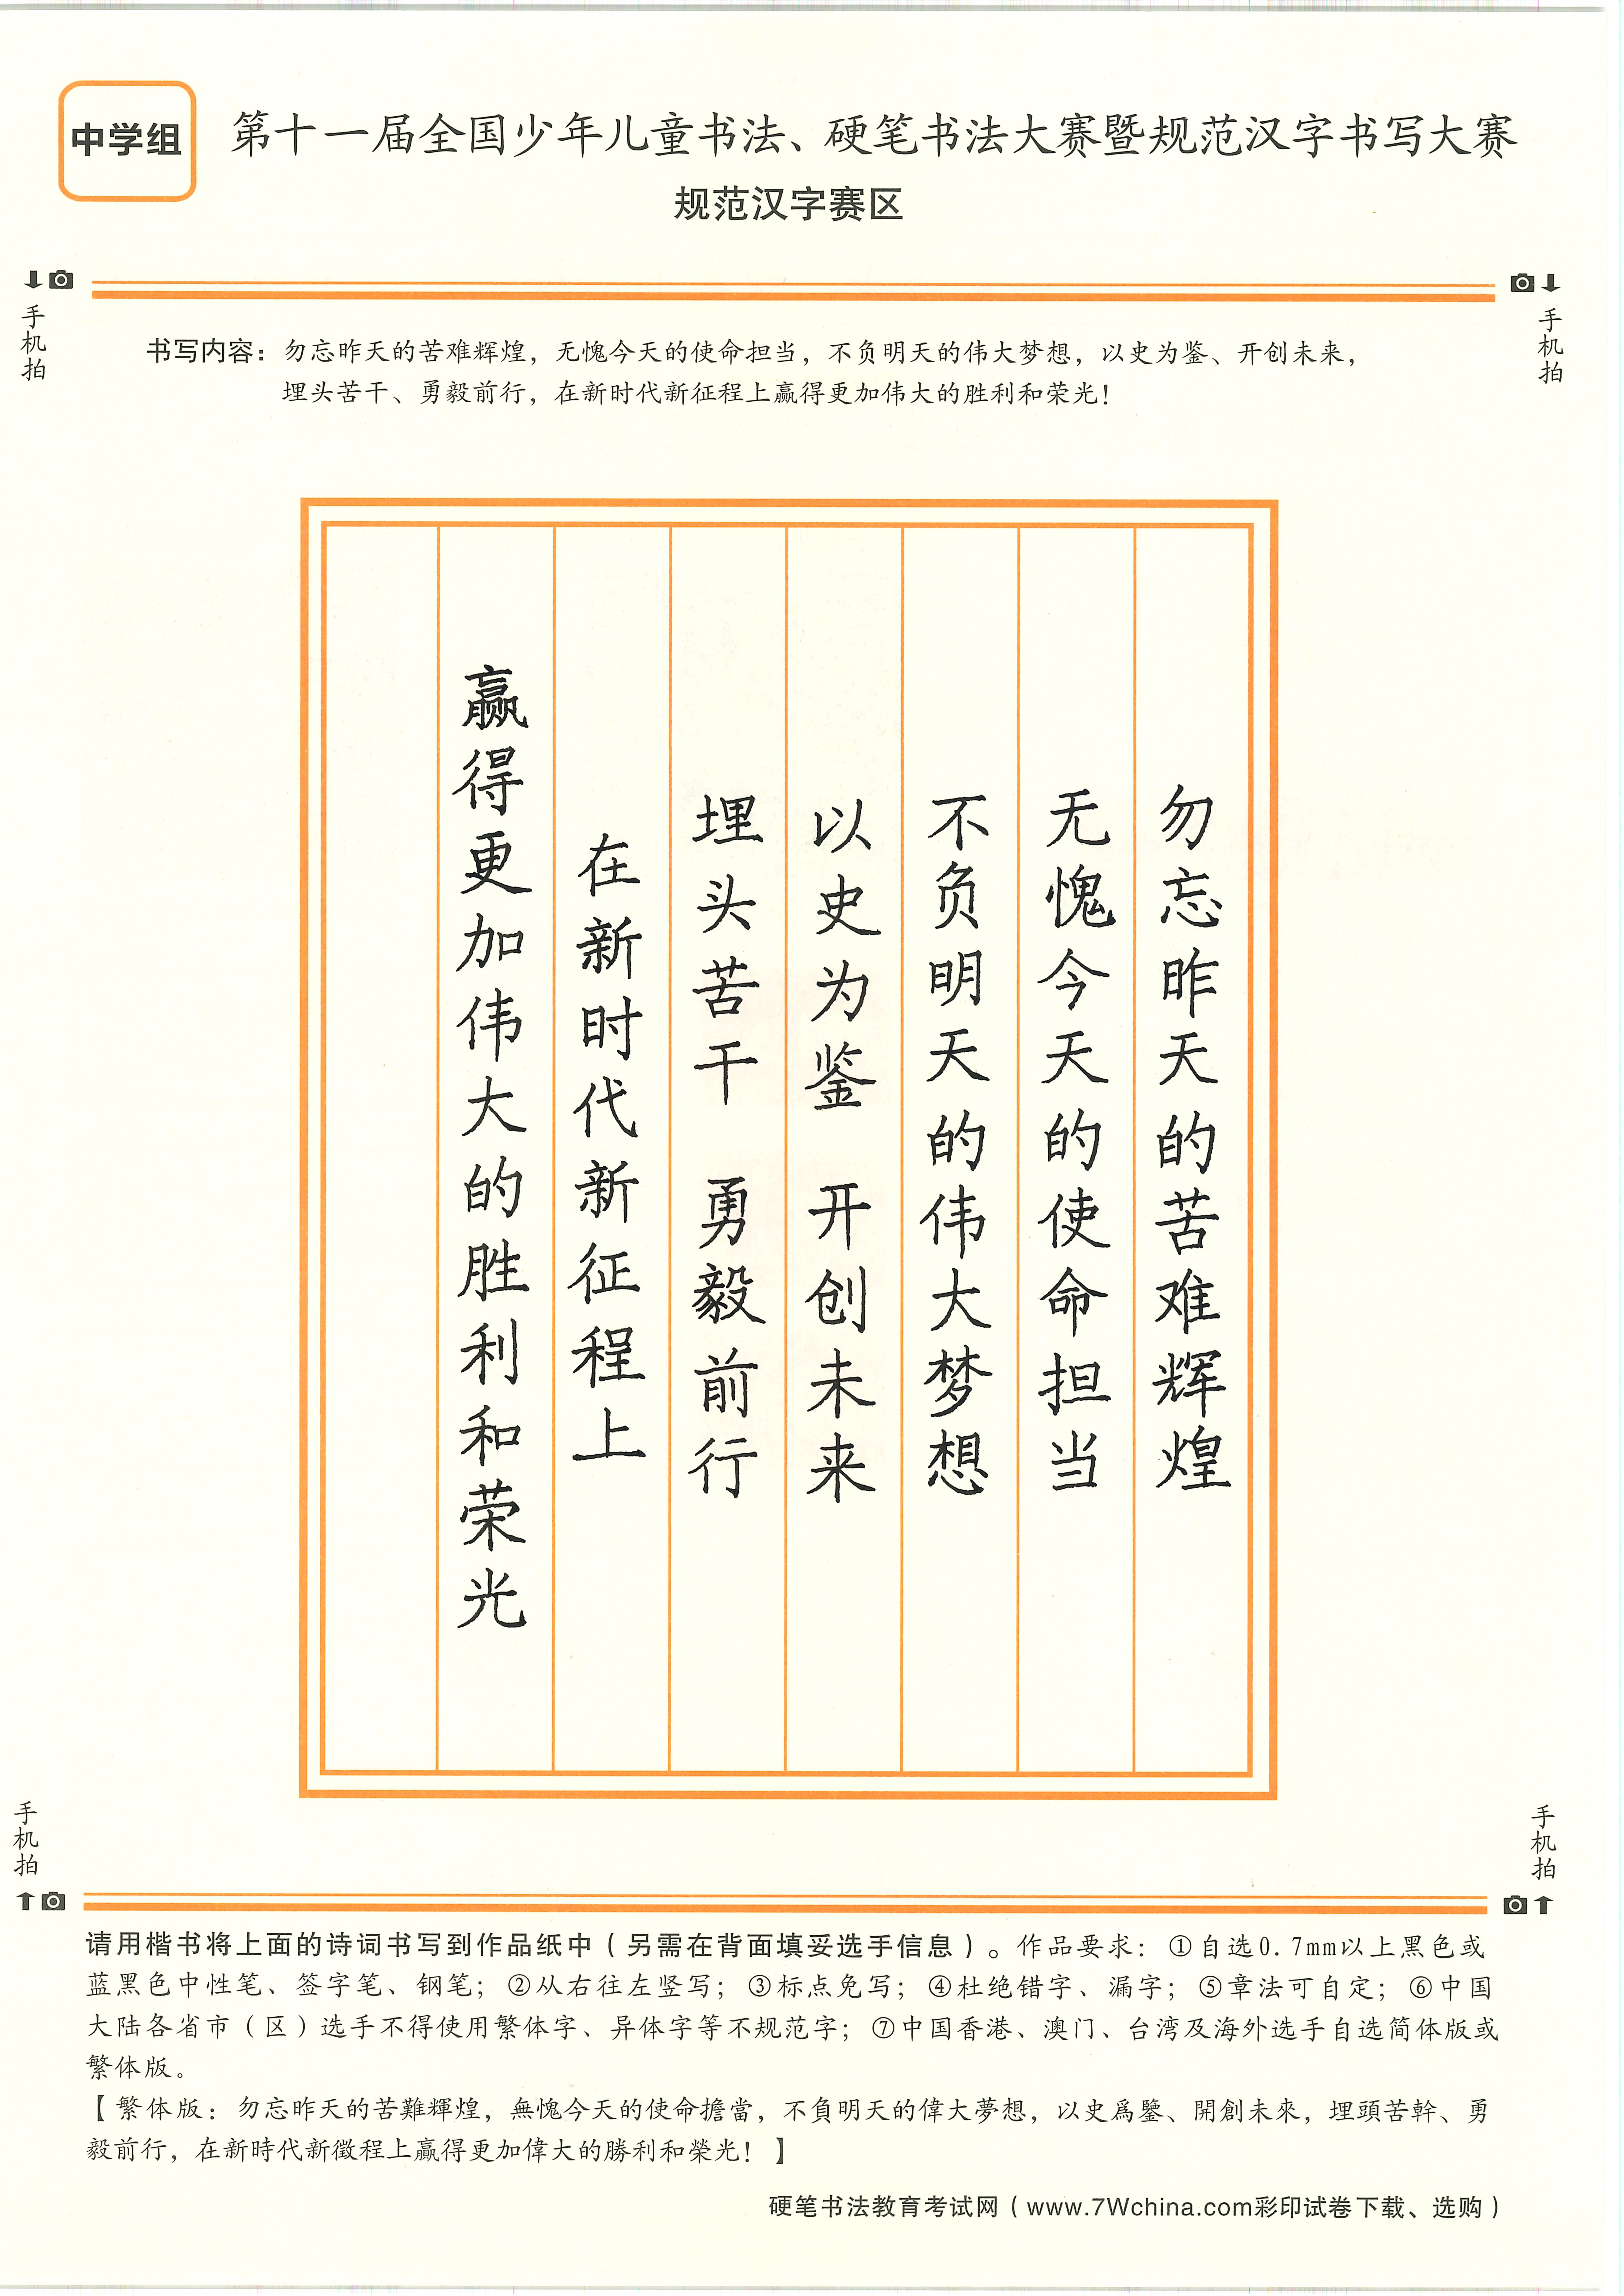 中学组
第十一届全国少年儿童书法、硬笔书法大赛暨规范汉字书写大赛
规范汉字赛区
手机拍
手机拍
书写内容：勿忘昨天的苦难辉煌，无愧今天的使命担当，不负明天的伟大梦想，以史为鉴、开创未来，
埋头苦干、勇毅前行，在新时代新征程上赢得更加伟大的胜利和荣光！
勿忘昨天的苦难辉煌
无愧今天的使命担当
不负明天的伟大梦想
以史为鉴 开创未来
埋头苦干 勇毅前行
在新时代新征程上
赢得更加伟大的胜利和荣光
手机拍
手机拍
请用楷书将上面的诗词书写到作品纸中（另需在背面填妥选手信息）。作品要求：①自选0.7mm以上黑色或
蓝黑色中性笔、签字笔、钢笔；②从右往左竖写；③标点免写；④杜绝错字、漏字；⑤章法可自定；⑥中国
大陆各省市（区）选手不得使用繁体字、异体字等不规范字；⑦中国香港、澳门、台湾及海外选手自选简体版或
繁体版。
【繁体版：勿忘昨天的苦難輝煌，無愧今天的使命擔當，不負明天的偉大夢想，以史爲鑒、開創未來，埋頭苦幹、勇
毅前行，在新時代新徵程上贏得更加偉大的勝利和榮光！】
硬笔书法教育考试网（www.7Wchina.com彩印试卷下载、选购）